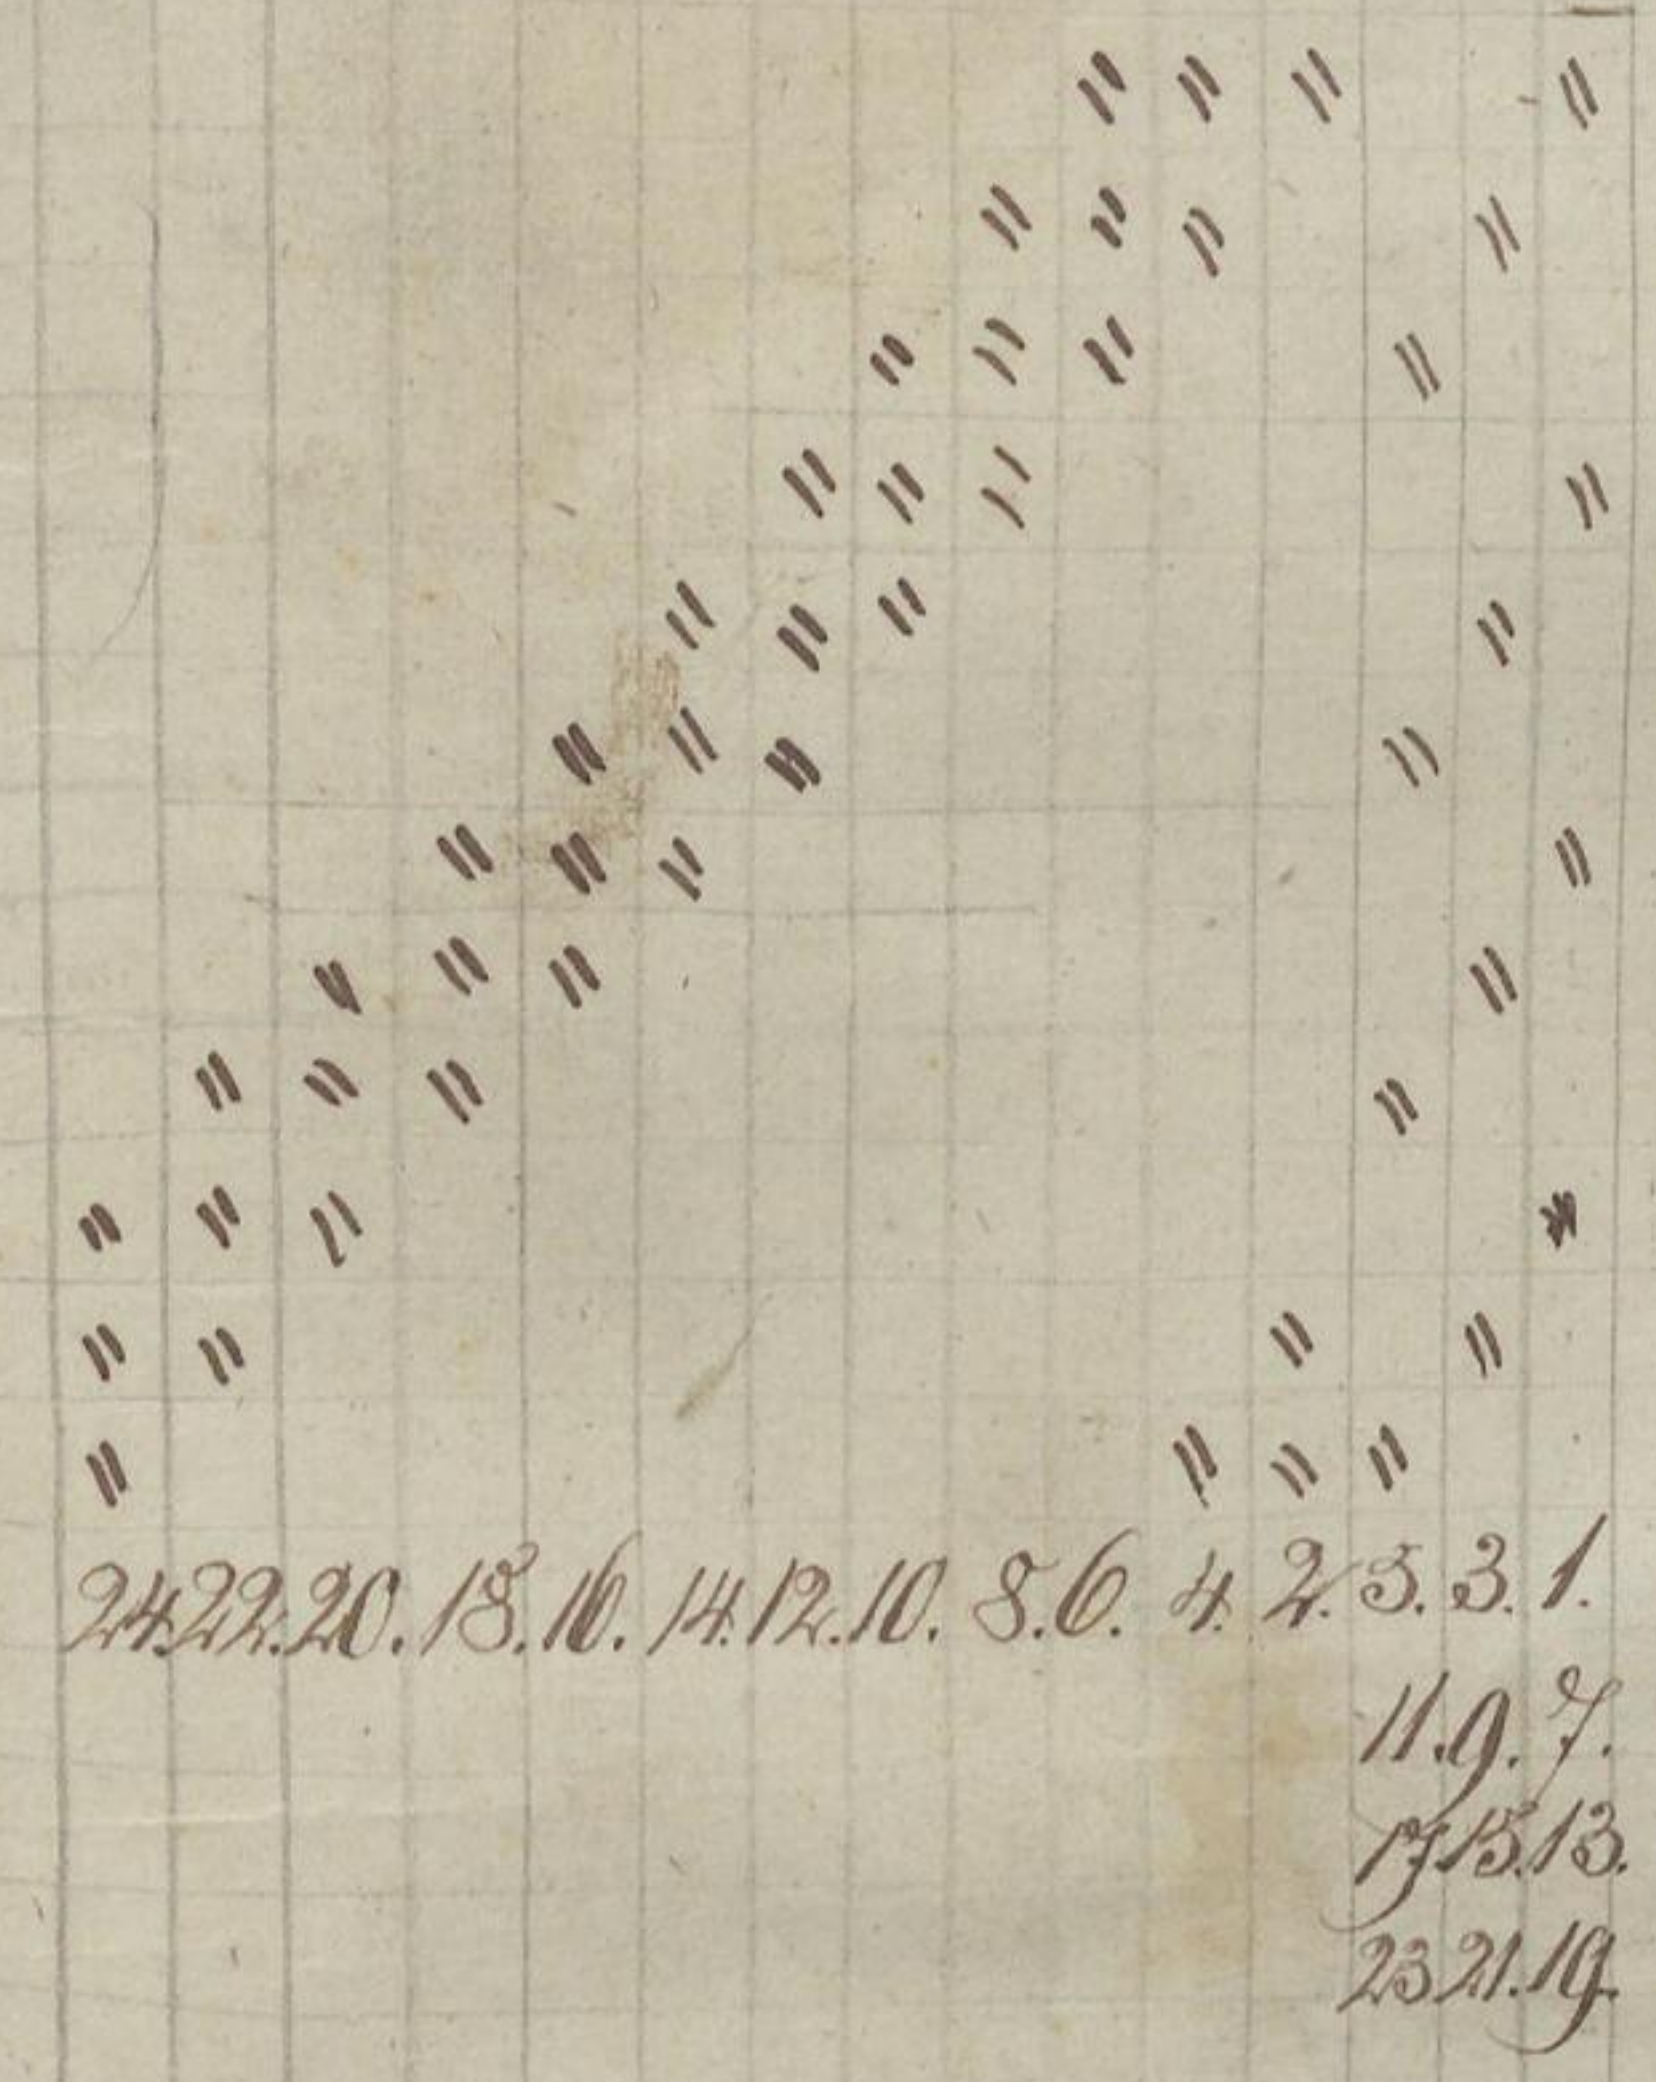 24. 22. 20. 18. 16. 14. 12. 10. 8. 6. 4. 2. 5. 3. 1.
11. 9. 7.
17 15. 13.
23 21. 19.